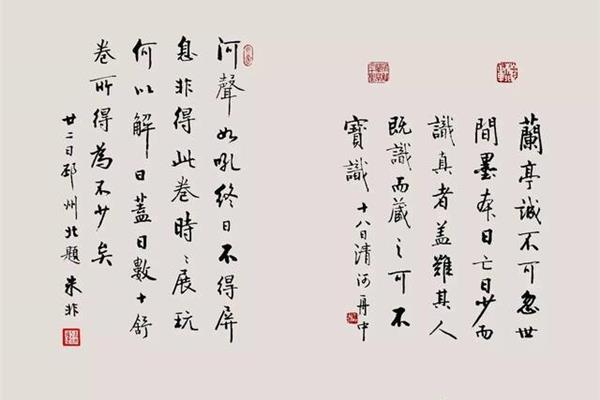 蘭亭誠不可忽世
間墨本日亡日少而
識真者盖難其人
既識而藏之可不
寶識 十八日清河舟中
河聲如吼終日不得屏
息非得此卷時〻展玩
何以解日蓋日數十舒
卷所得為不少矣
廿二日邳州北題 朱非